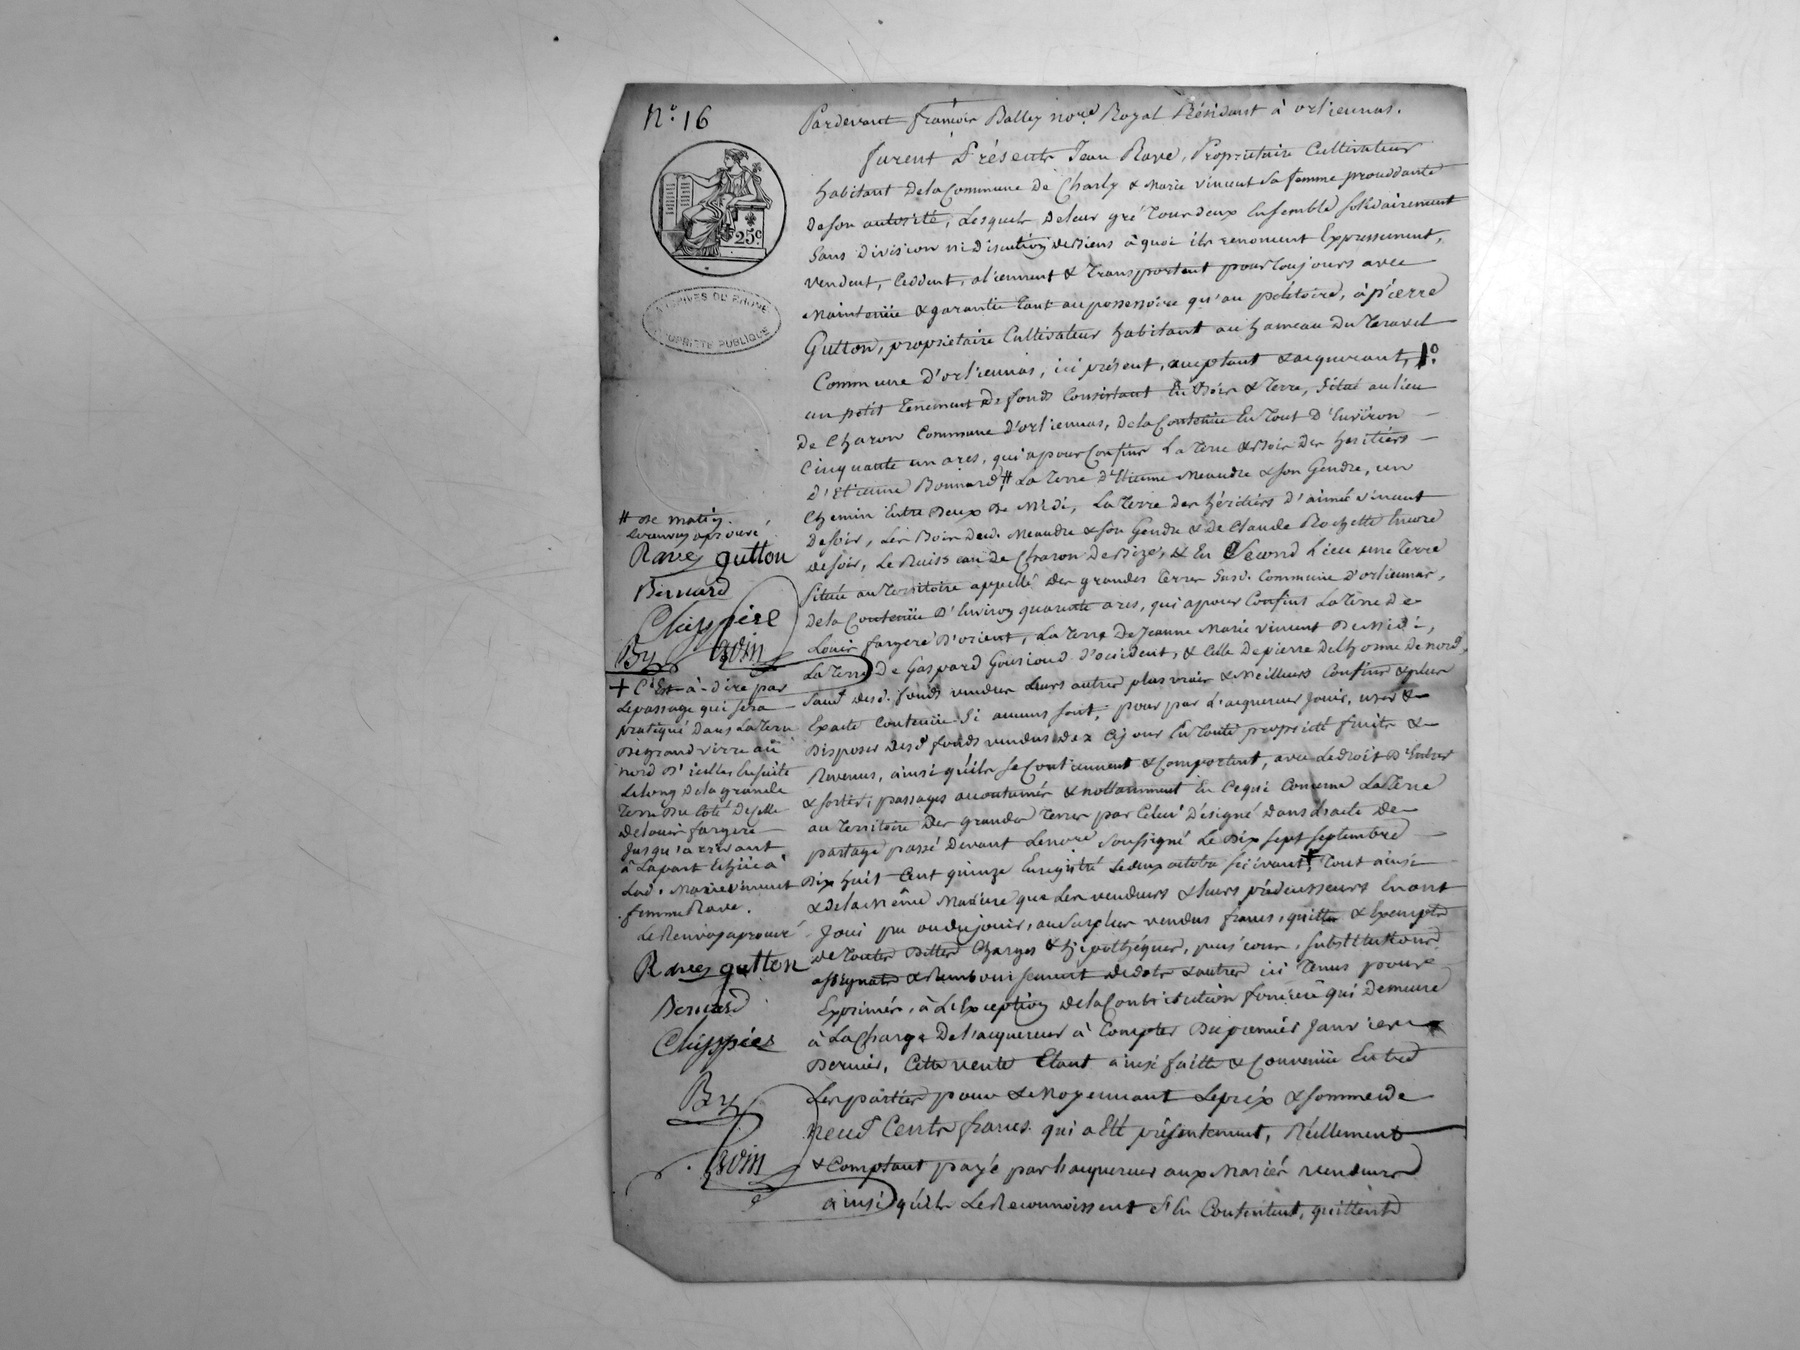 N.° 16
25c
ARCHIVES DU RHONE
PROPRIETE PUBLIQUE
Pardevant françois Balley no.re Royal Résidant à orliennas.
furent Présents Jean Rave, Propriétaire Cultivateur
habitant de la Commune de Charly & Marie vincent sa femme procédante
de son autorité, Lesquels de leur gré tous deux Ensemble solidairement
sans division ni discution de Biens à quoi ils renoncent Expressement,
vendent, Cèddent, aliennent & transportent pour toujours avec
Maintenüe & garantie tant au possessoire qu'au pétitoire, à pierre
Gutton, propriétaire Cultivateur habitant au hameau du Teravel
Commune d'orliennas, ici présent, acceptant & acquerant, 1°.
un petit tenement de fonds Consistant En Bois & Terre, situé au lieu
de Charon Commune d'orliennas, de la Contenüe En tout d'Environ
Cinquante un ares, qui a pour Confins La terre & Bois des heritiers
d'Etienne Bonnard # La terre d'Etienne Meaudre & son Gendre, un
Chemin Entre deux de Midi, La terre des héritiers d'aimé vincent
de soir, Les Bois dud. Meaudre & son Gendre & de Claude Rochette Encore
de soir, Le Ruisseau de Charon de Bize, & En Second Lieu une Terre
située au territoire appellé des grandes terres susd. Commune d'orliennas,
de la Contenüe d'Environ quarante ares, qui a pour Confins La terre de
Louis fargere d'orient, La terre de Jeanne Marie vincent de Midi,
La terre de Gaspard d'occident, & Celle de pierre delhorme de nord,
sauf desd. fonds vendus Leurs autres plus vrais & Meilleurs Confins & plus
Exacte Contenüe si aucuns sont, pour par L'acquereur Jouir, user &
Disposer desd. fonds vendus dez Ce jour En toute propriété fruits &
Revenus, ainsi qu'ils se Contiennent & Comportent, avec Le droit d'Entrer
& sortir, passages accoutumés & nottamment En Ce qui Concerne La terre
au territoire des grandes terres par Celui désigné dans L'acte de
partage passé devant Le no.re soussigné Le Dix sept septembre
Dix huit Cent quinze Enregistré Le deux octobre suivant + Tout ainsi
& de la Même Manière que Les vendeurs & leurs prédecesseurs En ont
Joui pu ou du jouir, au surplus vendus francs, quittes & Exempts
de toutes Dettes Charges & hipothéques, substitutions
assignats & Remboursement de dots & autres ici tenus pour
Exprimés, à L'Exception de la Contribution foncière qui demeure
à La Charge De l'acquereur à Compter Du premier Janvier
Dernier, Cette vente Etant ainsi faitte & Convenüe Entre
Les parties pour & Moyennant Le prix & somme de
neuf Cents francs qui a Eté présentement, Réellement
& Comptant payé par L'acquereur aux Mariés vendeurs
ainsi qu'ils Le Reconnoissent s'En Contentent, quittent
# de matin.
Le renvoy aprouvé
Rave gutton
Bernard
Chippier
By
+ C'Est-à-dire par
Le passage qui sera
pratiqué Dans La terre
nord d'icelles Ensuite
Le long de la grande
terre du Coté de Celle
de Louis fargere
Jusqu'arrivant
à La part Echüe à
Lad. Marie vincent
femme Rave.
Le Renvoy aprouvé
Rave gutton
Bernard
Chippier
By